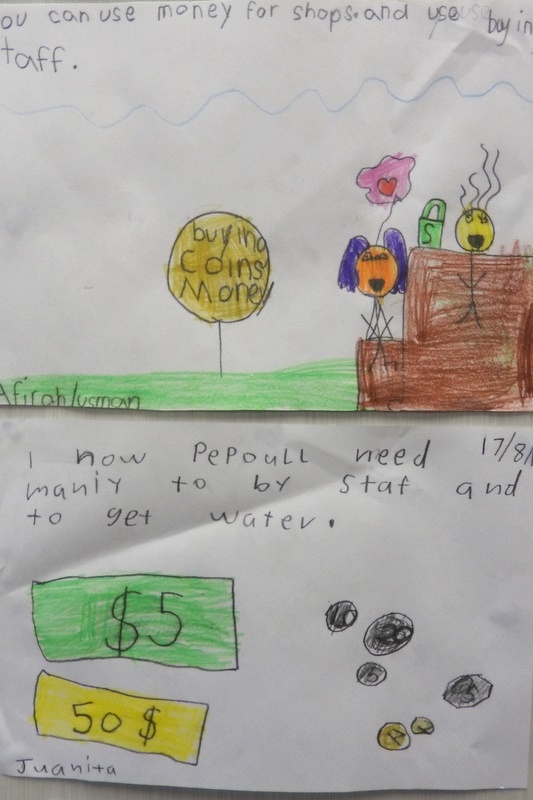 ou can use money for shops. and use buyin
taff.
buying
Coins
Money
S
Afirahlusman
I now PePoull need 17/8/
maniy to by Staf and
to get water.
$5
50 $
Juanita